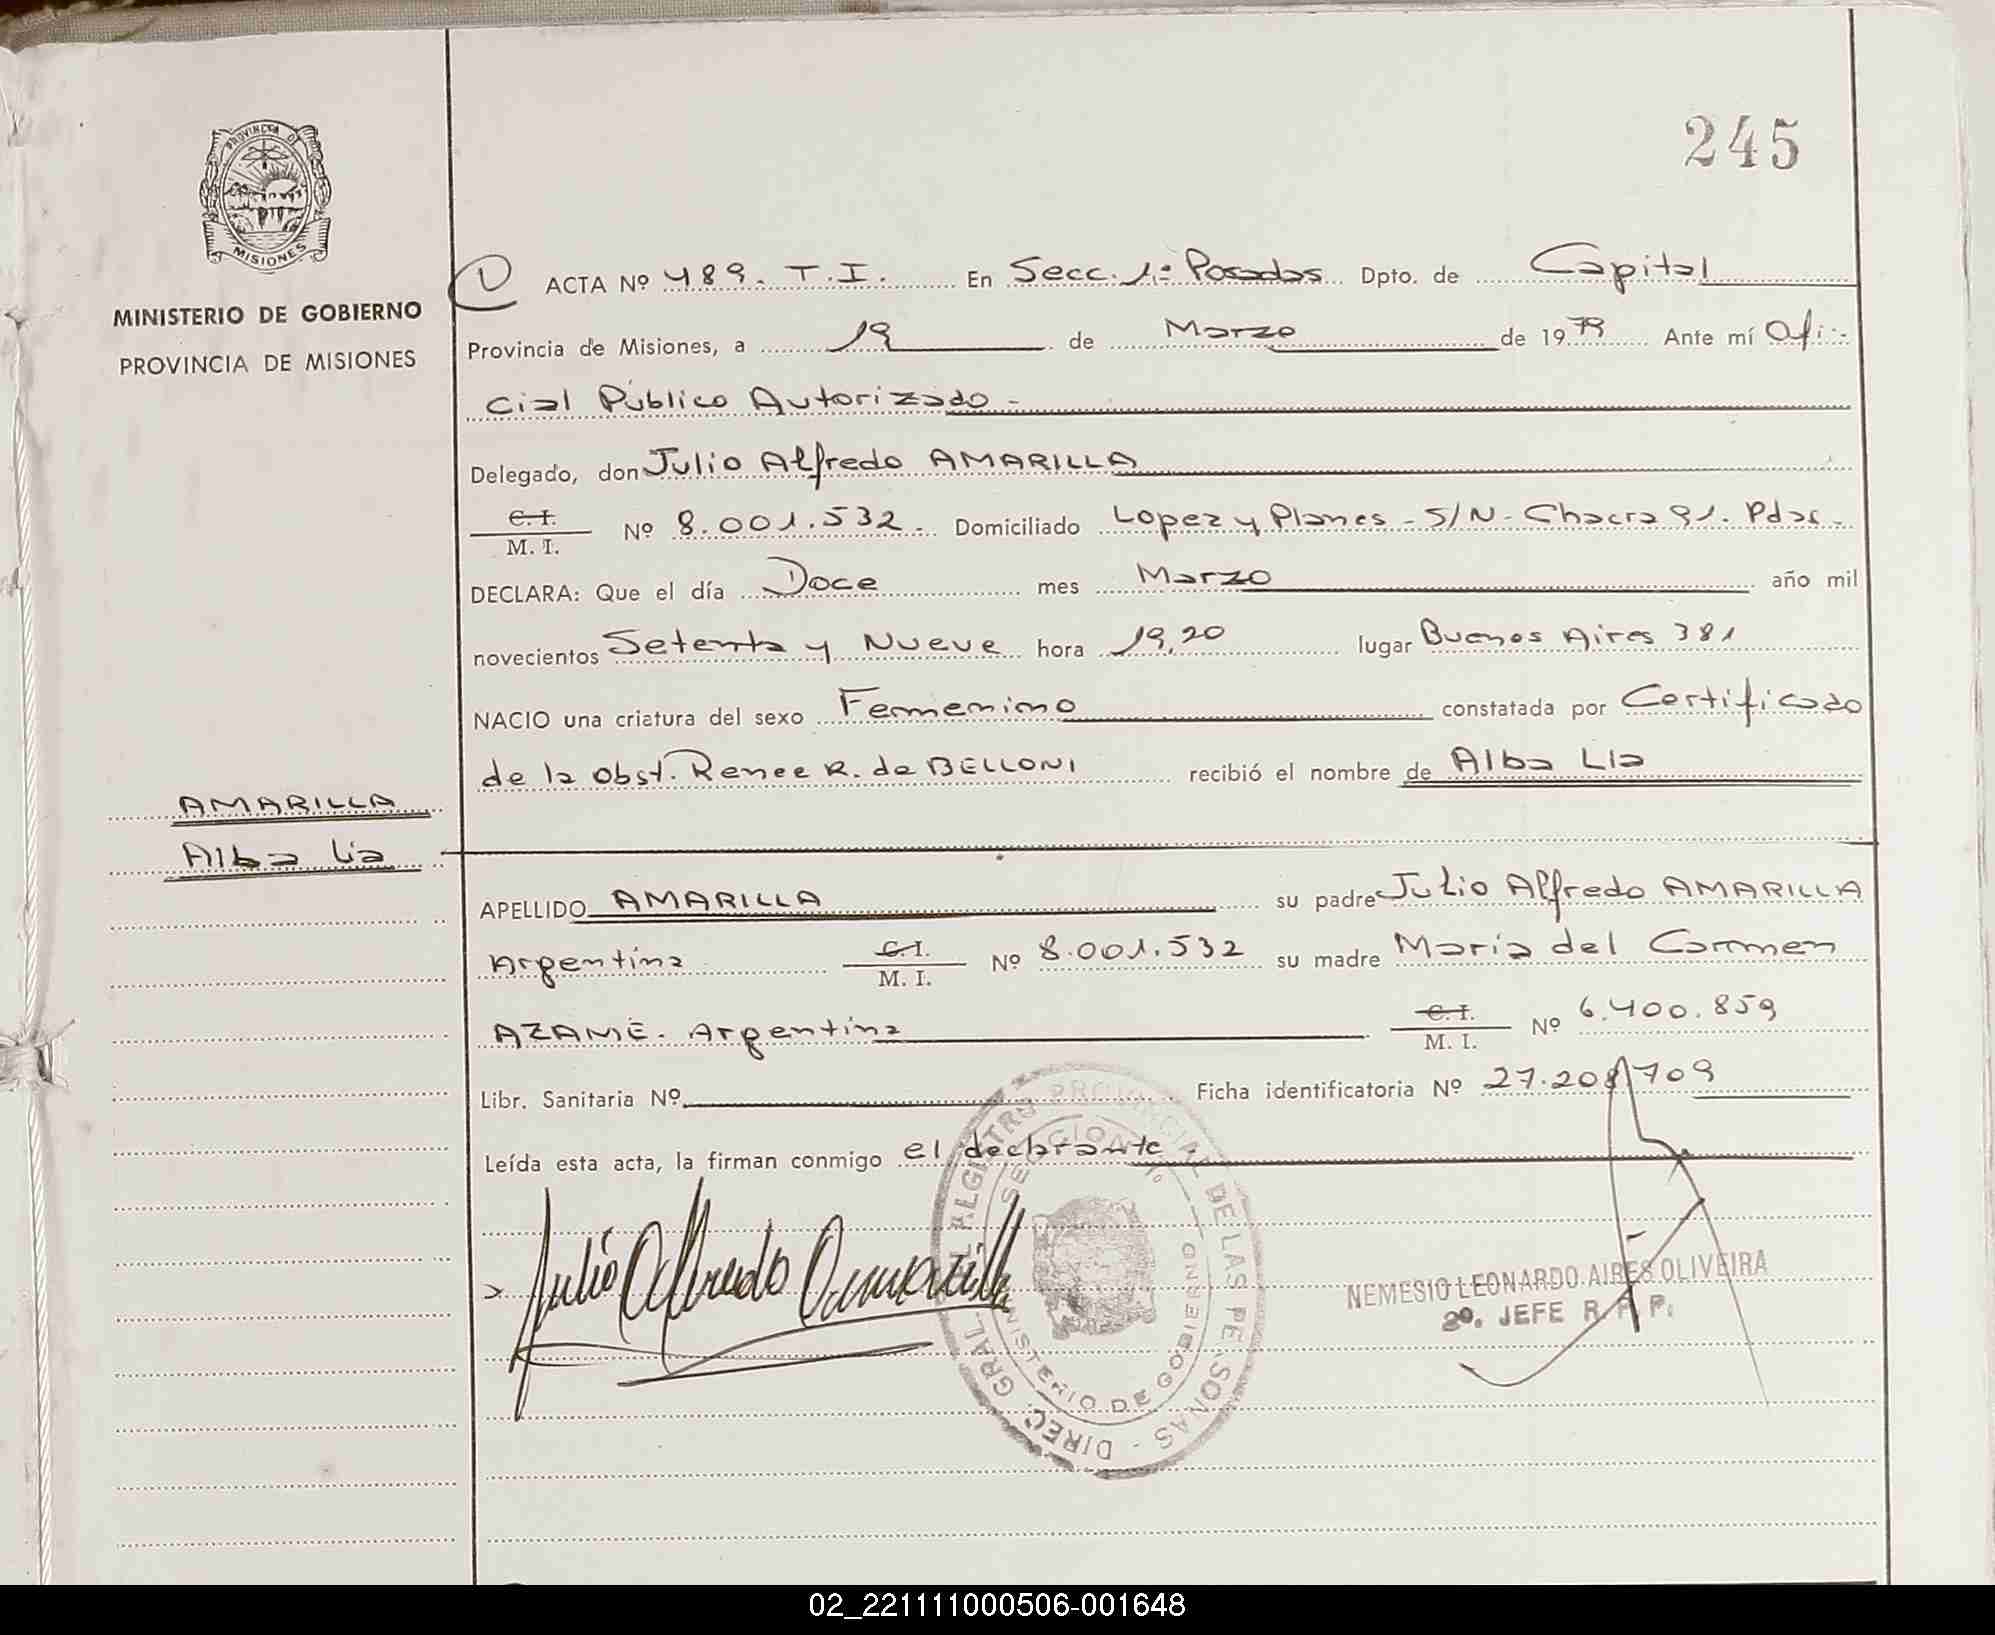 245
PROVINCIA DE
MISIONES
MINISTERIO DE GOBIERNO
PROVINCIA DE MISIONES
1 ACTA Nº 489. T.I. En Secc. 1ª Posadas Dpto. de Capital
Provincia de Misiones, a 19 de Marzo de 1979 Ante mí Ofi-
cial Público Autorizado -
Delegado, don Julio Alfredo AMARILLA
C. I.
M. I. Nº 8.001.532. Domiciliado Lopez y Planes - S/N - Chacra 91. Pdas.
DECLARA: Que el día Doce mes Marzo año mil
novecientos Setenta y Nueve hora 19,20 lugar Buenos Aires 381
NACIO una criatura del sexo Femenino constatada por Certificado
de la Obst. Renee R. de BELLONI recibió el nombre de Alba Lia
AMARILLA
Alba Lia
APELLIDO AMARILLA su padre Julio Alfredo AMARILLA
Argentina C. I.
M. I. Nº 8.001.532 su madre Maria del Carmen
AZAME. Argentina C. I.
M. I. Nº 6.400.859
Libr. Sanitaria Nº Ficha identificatoria Nº 27.208.709
Leída esta acta, la firman conmigo el declarante.
Julio Alfredo Amarilla
DIREC. GRAL. DEL REGISTRO PROVINCIAL DE LAS PERSONAS
MINISTERIO DE GOBIERNO
NEMESIO LEONARDO AIRES OLIVEIRA
2º. JEFE R. P. P.
02_221111000506-001648